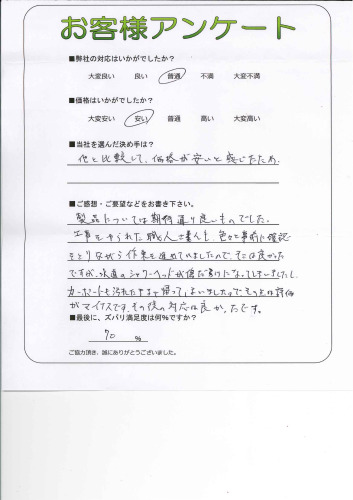 お客様アンケート
■弊社の対応はいかがでしたか？
大変良い 良い 普通 不満 大変不満
■価格はいかがでしたか？
大変安い 安い 普通 高い 大変高い
■当社を選んだ決め手は？
他と比較して、価格が安いと感じたため
■ご感想・ご要望などをお書き下さい。
製品については期待通り良いものでした。
工事をやられた職人さんも、色々と事前に確認
をとりながら作業を進めていましたので、そこは良かった
ですが、水道のシャワーヘッドが傷だらけになってしまいましたし、
カーポートも汚れたままで帰ってしまいましたので、その点は評価
がマイナスです。その後の対応は良かったです。
■最後に、ズバリ満足度は何%ですか？
70 %
ご協力頂き、誠にありがとうございました。